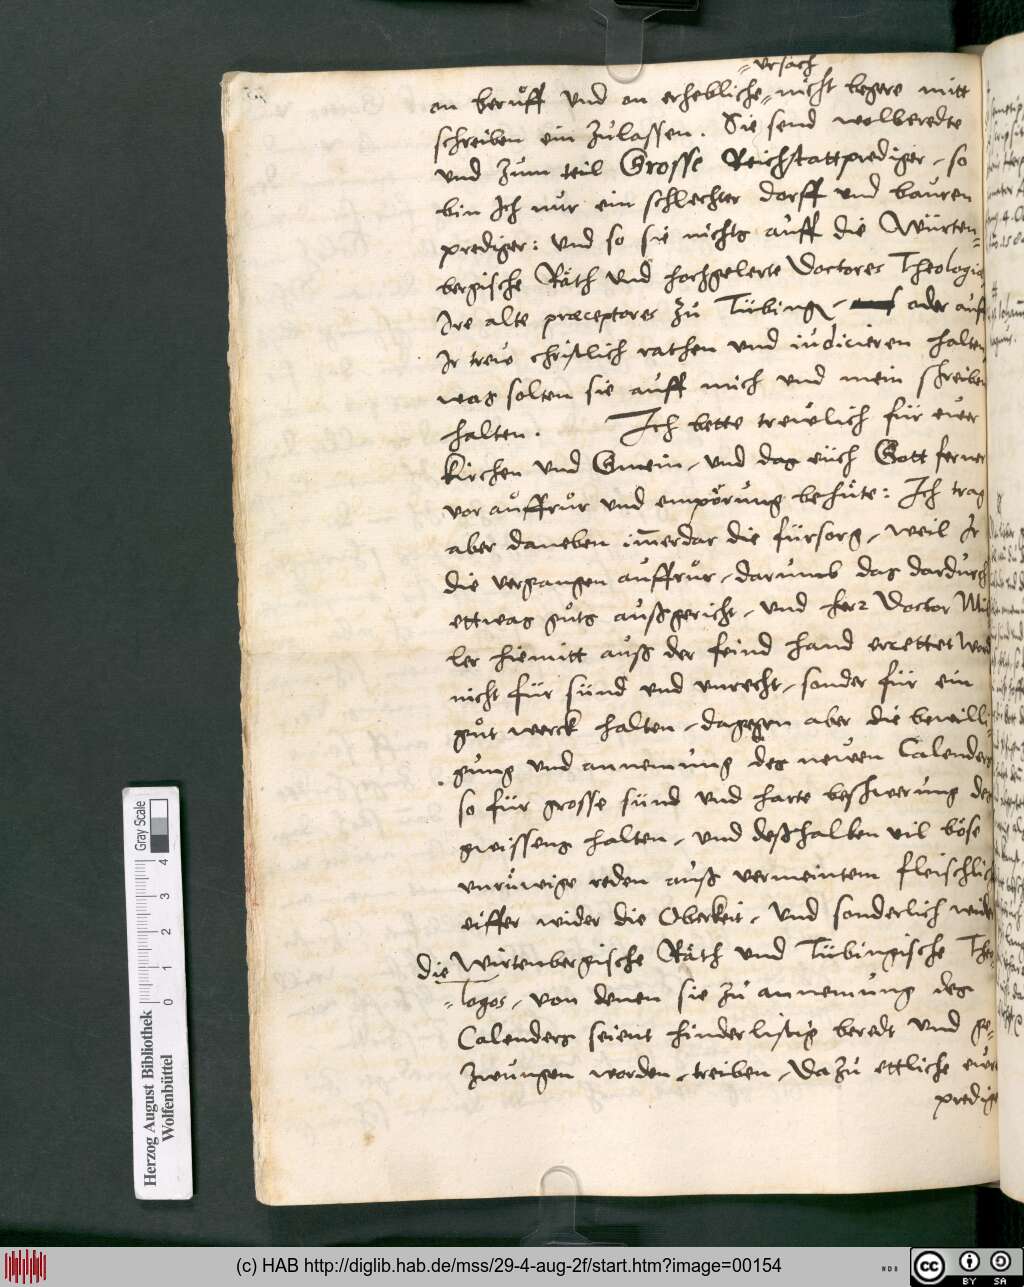 ursach
an berůff und an erhebliche= nicht begere mitt
schreiben ein zůlassen. Sie send wolberedte
und zum teil Grosse Reichstattprediger, so
bin Ich nur ein schlechter dorff und bauren
prediger: und so sie nichts auff die Würten=
bergische Räth und hochgelerte Doctores Theologiæ
Ire alte præceptores zů Tübing, oder auff
Ir trew christlich rathen und iudicieren halten
was solten sie auff mich und mein schreiben
halten. Ich bette trewlich für euer
Kirchen und Gmein, und das eüch Gott ferner
vor aůffrůr und empörung behüte: Ich trag
aber daneben im̅erdar die fürsorg, weil Ir
die vergangen auffrůr, darumb das dardurch
ettwas gůts außgericht, und herr Doctor Mül
ler hiemitt auß der feind hand errettet word
nicht für sünd und unrecht, sonder für ein
gůt werck halten, dagegen aber die bewilli=
gung und annemung des neuen Calenders
so für grosse sünd und harte beschwerung des
gwissens halten, und deßhalben vil böse
unrüwige reden auß vermeintem fleischlich
eiffer wider die Oberkeit, und sonderlich wider
die Würtenbergische Räth und Tübingische Theo=
=logos, von denen sie zů annemung des
Calenders seient hinderlistig beredt und ge=
zwungen worden, treiben, Da zů ettliche euere
predige
Gray Scale
4
3
2
1
0
Herzog August Bibliothek
Wolfenbüttel
(c) HAB http://diglib.hab.de/mss/29-4-aug-2f/start.htm?image=00154
WDB
cc BY SA